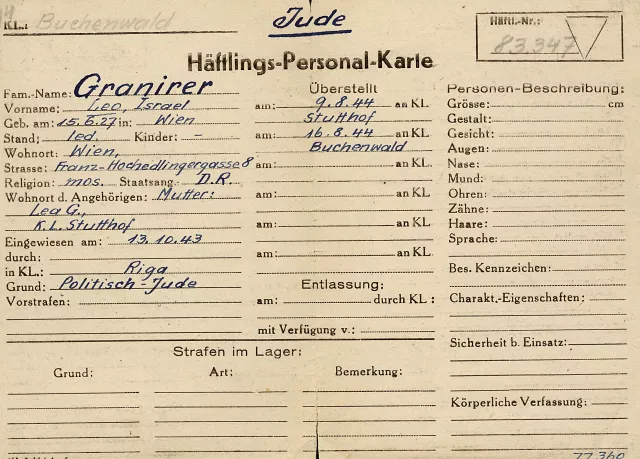 KL.: Buchenwald
Jude
Häftl.-Nr.:
83.347
Häftlings-Personal-Karte
Fam.-Name: Granirer
Vorname: Leo, Israel
Geb. am: 15.6.27 in: Wien
Stand: led. Kinder: –
Wohnort: Wien,
Strasse: Franz-Hochedlingergasse 8
Religion: mos. Staatsang. D.R.
Wohnort d. Angehörigen: Mutter:
Lea G.,
K.L. Stutthof
Eingewiesen am: 13.10.43
durch:
in KL.: Riga
Grund: Politisch-Jude
Vorstrafen:
Überstellt
am: 9.8.44 an KL
Stutthof
am: 16.8.44 an KL
Buchenwald
am: an KL
am: an KL
am: an KL
am: an KL
Entlassung:
am: durch KL:
mit Verfügung v.:
Personen-Beschreibung:
Grösse: cm
Gestalt:
Gesicht:
Augen:
Nase:
Mund:
Ohren:
Zähne:
Haare:
Sprache:
Bes. Kennzeichen:
Charakt.-Eigenschaften:
Sicherheit b. Einsatz:
Körperliche Verfassung:
Strafen im Lager:
Grund: Art: Bemerkung:
77.360